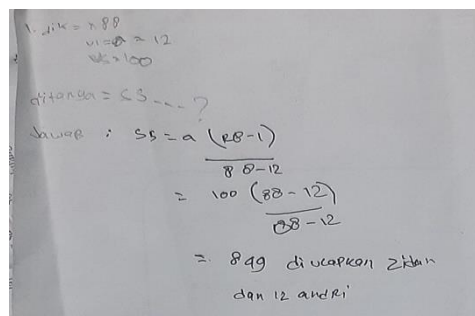 1. dik = r 88
U1 = a = 12
U5 = 100
ditanya = S5 .... ?
Jawab : S5 = a (R8-1)
88-12
= 100 (88-12)
88-12
= 849 diucapkan Zidan
dan 12 andri